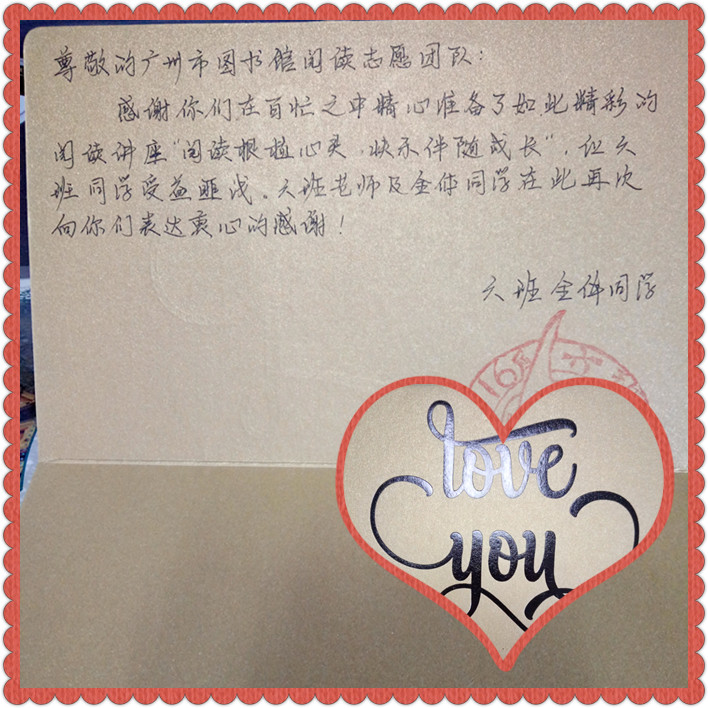 尊敬的广州市图书馆阅读志愿团队:
感谢你们在百忙之中精心准备了如此精彩的
阅读讲座“阅读根植心灵,快乐伴随成长”,让六
班同学受益匪浅。六班老师及全体同学在此再次
向你们表达衷心的感谢!
六班全体同学
165
love
you